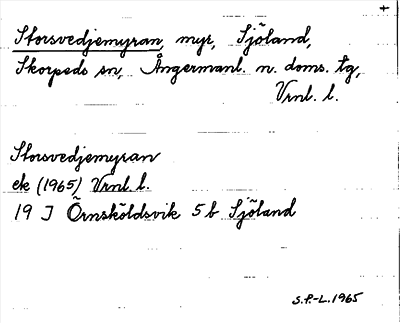 +
Storsvedjemyran, myr, Sjöland,
Skorpeds sn, Ångermanl. n. doms. tg,
Vrnl. l.
Storsvedjemyran
ek (1965) Vrnl. l.
19 J Örnsköldsvik 5 b Sjöland
S.P.-L. 1965